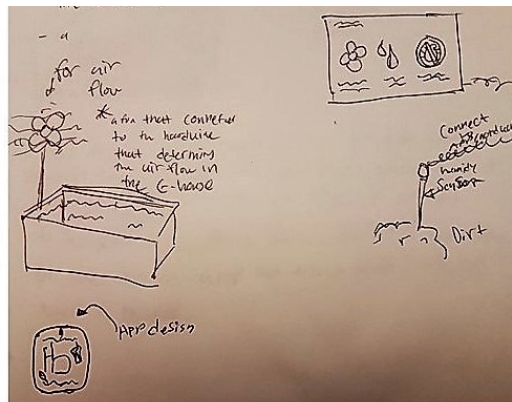 - a
for air
flow
* a fan that connected
to the hardwire
that determing
the air flow in
the G-house
Connect
Sensor
Dirt
App design